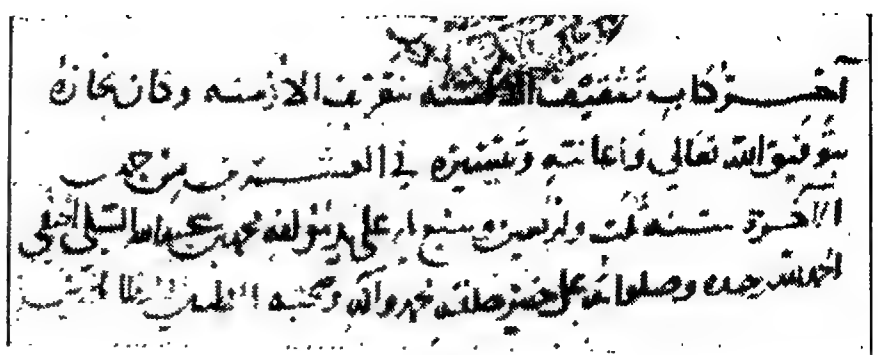 آخر كتاب تثقيف الألسنة بتعريف الأزمنة وكان نجازه
بتوفيق الله تعالى واعانته وتيسيره في العشرين من جمدى
الاخرة سنة ثلث واربعين وسبع مايه على يد مؤلفه محمد بن عبدالله الشبلي الحنفي
الحمد لله وحده وصلواته على خير خلقه محمد وآله وصحبه الطيبين الطاهرين